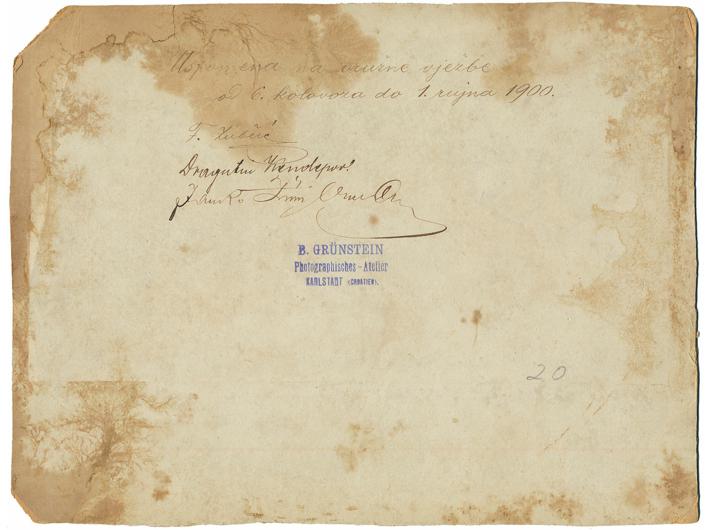 Uspomena na oružne vježbe
od 6. kolovoza do 1. rujna 1900.
Dragutin
Janko
B. GRÜNSTEIN
Photographisches-Atelier
KARLSTADT (CROATIEN).
20